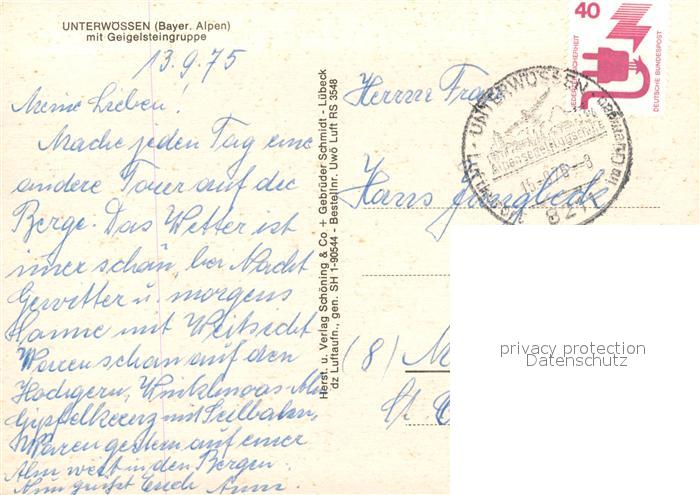 UNTERWÖSSEN (Bayer. Alpen)
mit Geigelsteingruppe
13.9.75
Meine Lieben!
Mache jeden Tag eine
andere Tour auf die
Berge. Das Wetter ist
imer schön, bei Nacht
Gewitter u. morgens
Sonne mit Weitsicht
Waren schon auf den
Hochgern, Winklmoos Alm
Gipfelkreuz mit Seilbahn.
Waren gestern auf einer
Alm weit in den Bergen.
Nun grüßt Euch Anni.
Herst. u. Verlag Schöning & Co + Gebrüder Schmidt - Lübeck
dz Luftaufn., gen. SH 1-90544 - Bestellnr. Uwö Luft RS 3548
40
DEUTSCHE BUNDESPOST
UNTERWÖSSEN
8211
Herrn Frau
Hans
(8) M
privacy protection
Datenschutz